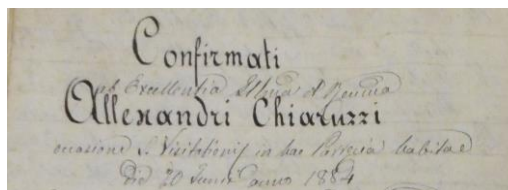 Confirmati
ab Excellentia Illma et Rma
Allexandri Chiaruzzi
occasione S. Visitationis in hac Parrecia habitae
Die 20 Junii anno 1884